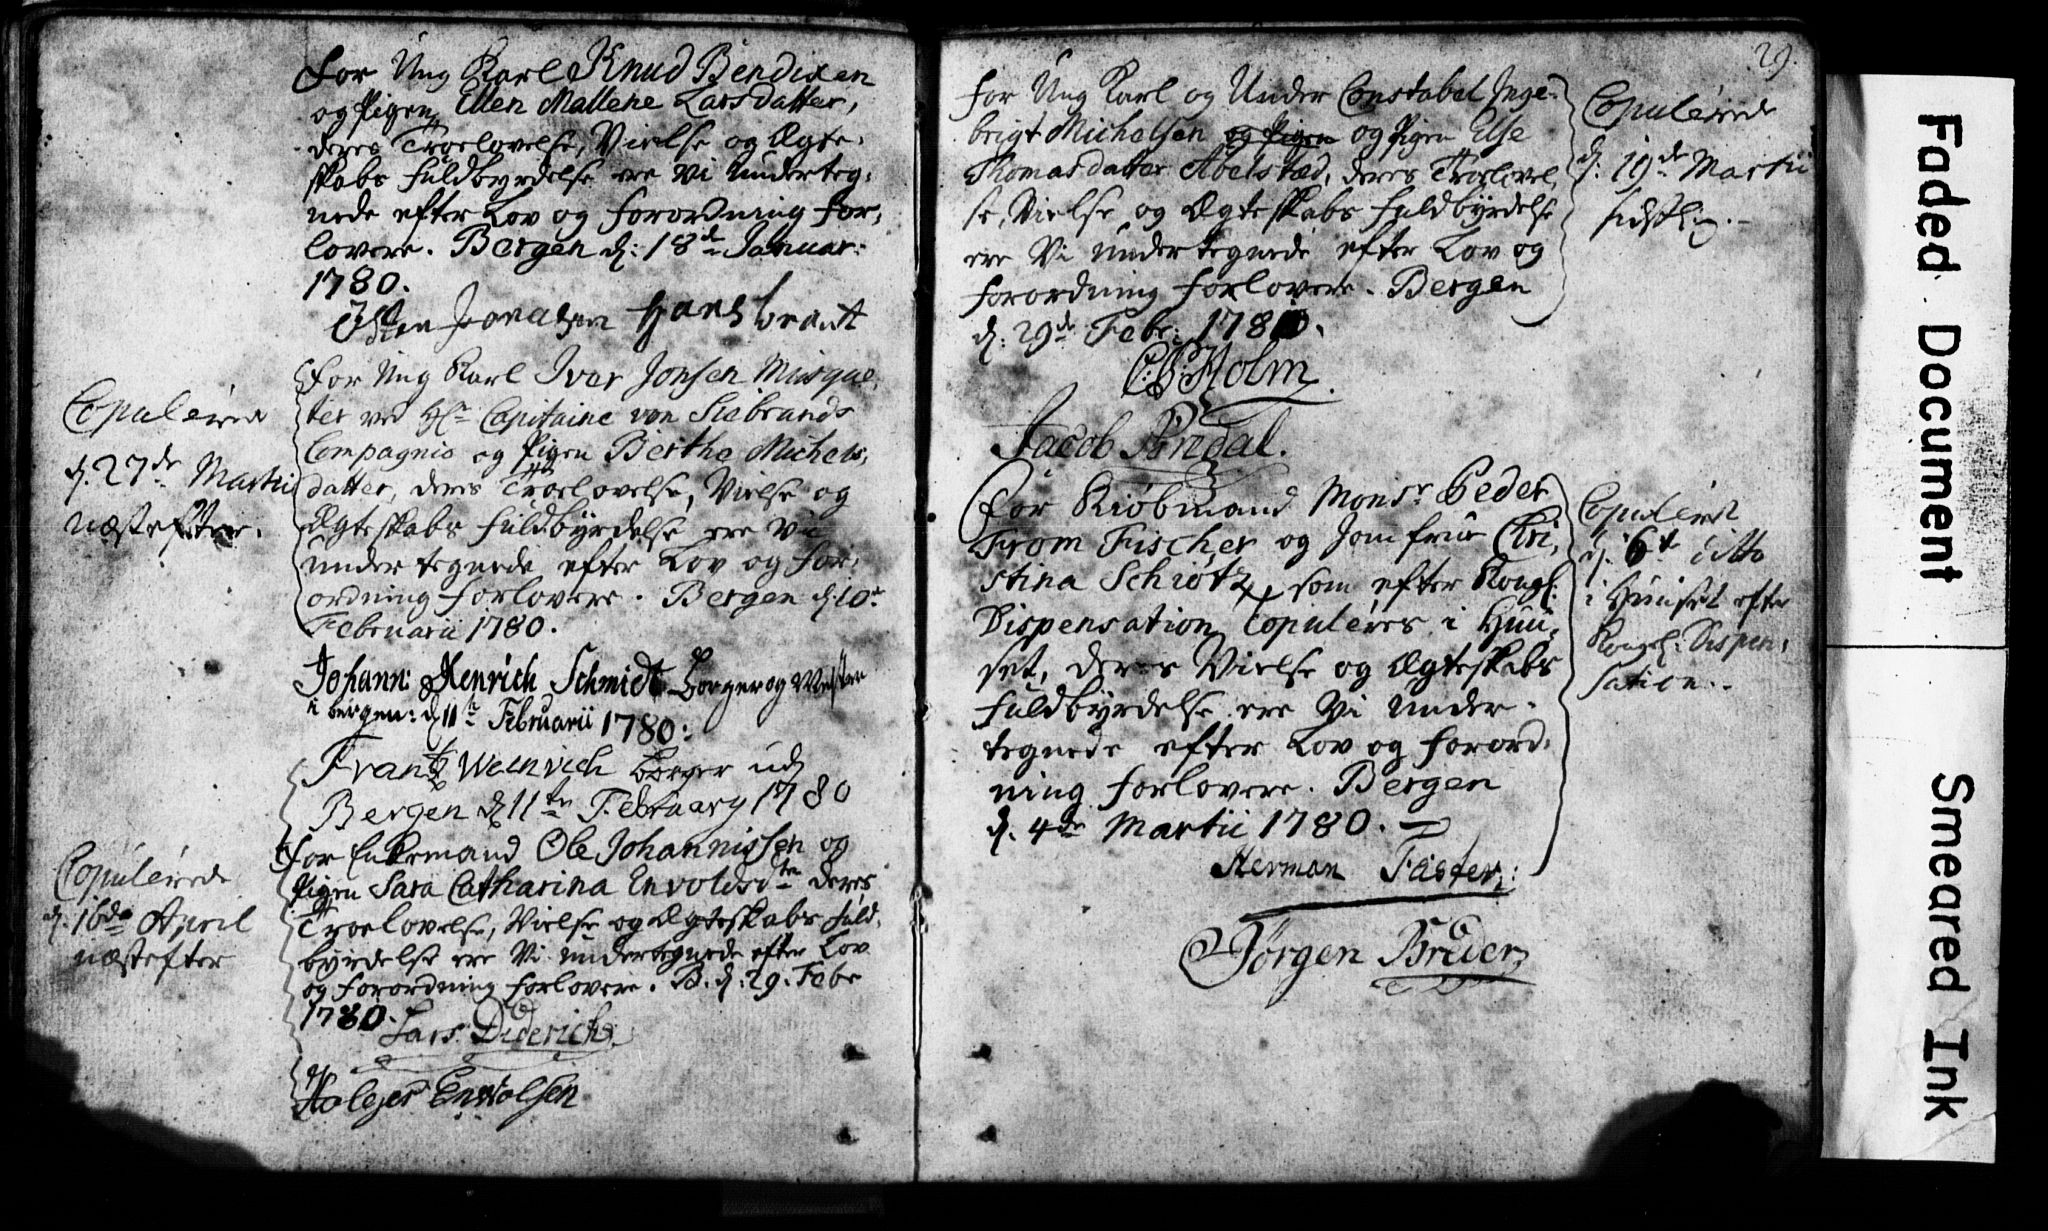 For Ung Karl Knud Bendixen
og Pigen Ellen Mallene Larsdatter,
deres Troelovelse, Vielse og Ægte-
skabs Fuldbyrdelse ere Vi underteg-
nede efter Lov og Forordning For-
lovere. Bergen d: 18de Januar:
1780.
Jonatsen Hans brantt
For Ung Karl Iver Jonsen Musque-
ter ved Hr Capitaine von Siebrands
Compagnie og Pigen Berthe Michels-
datter, deres Troelovelse, Vielse og
Ægteskabs Fuldbyrdelse ere Vi
undertegnede efter Lov og For-
ordning Forlovere. Bergen d: 10de
Februarii 1780.
Johann Henrich Schmidt borger og
i bergen: d 11te Februarii 1780:
Frantz Weinrich borger udj
Bergen d 11te February 1780
For Enkemand Ole Johannissen og
Pigen Sara Catharina Envoldsdtr deres
Troelovelse, Vielse og Ægteskabs Fuld-
byrdelse ere Vi undertegnede efter Lov
og Forordning Forlovere. B. d: 29. Febr
1780.
Lars Diderichs
Holger Enwolsen
Copulerede
d. 27de Martii
næstefter.
Copulerede
d. 16de April
næstefter
29.
For Ung Karl og Under Constabel Inge-
brigt Michelsen og Pigen og Pigen Else
Thomasdatter Abelsted, deres Troelovel-
se, Vielse og Ægteskabs Fuldbyrdelse
ere Vi undertegnede efter Lov og
Forordning Forlovere. Bergen
d: 29de Febr: 1780.
C:B:Holm
Jacob Arndal.
For Kiøbmand Monsr Peder
From Fischer og Jomfrue Chri-
stina Schiøtz, som efter Kongl:
Dispensation Copuleres i Huu-
set, deres Vielse og Ægteskabs
Fuldbyrdelse ere Vi under-
tegnede efter Lov og Forord-
ning Forlovere. Bergen
d. 4de Martii 1780.
Herman Faster:
Jørgen Bruder
Copulerede
d: 19de Martii
sidstl:
Copuleret
d. 6te ditto
i Huuset efter
Kongl: Dispen-
sation.
Faded Document
Smeared Ink